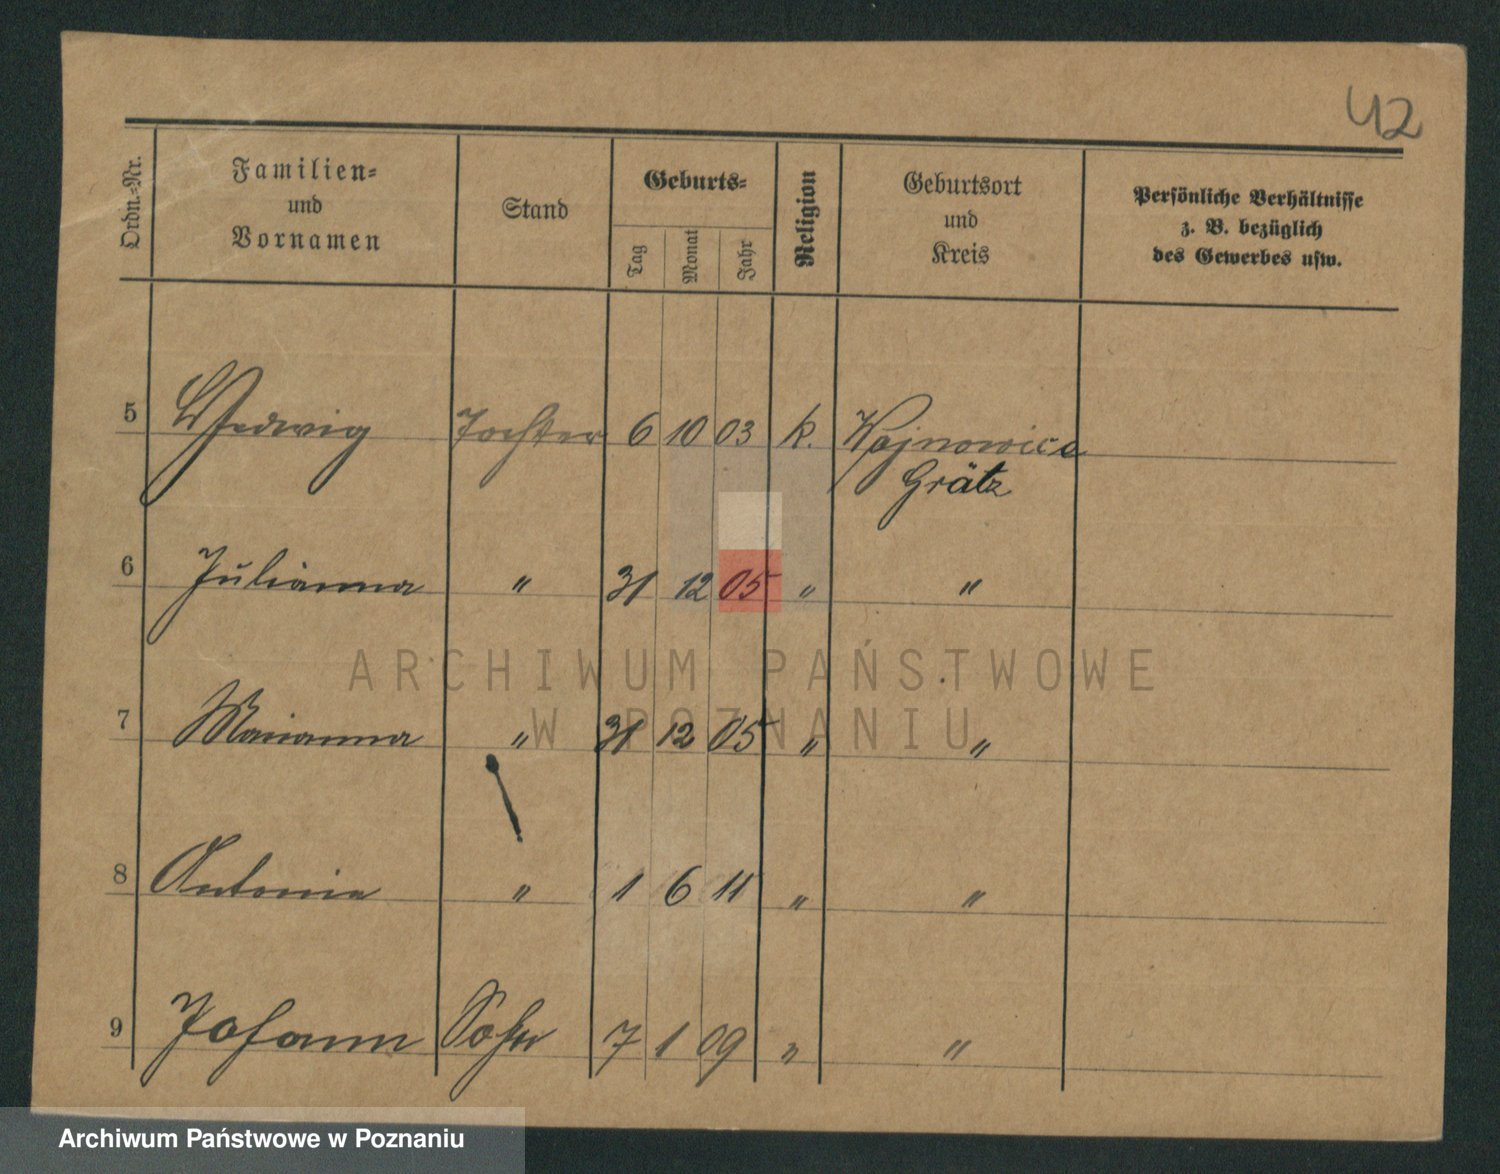 42
Ordn.-Nr.
Familien-
und
Vornamen
Stand
Geburts-
Tag
Monat
Jahr
Religion
Geburtsort
und
Kreis
Persönliche Verhältnisse
z. B. bezüglich
des Gewerbes usw.
5 Hedwig Tochter 6 10 03 k. Wojnowice
Grätz
6 Julianna " 31 12 05 " "
ARCHIWUM PAŃSTWOWE
W POZNANIU
7 Marianna " 31 12 05 " "
8 Antonie " 1 6 11 " "
9 Johann Sohn 7 1 09 " "
Archiwum Państwowe w Poznaniu